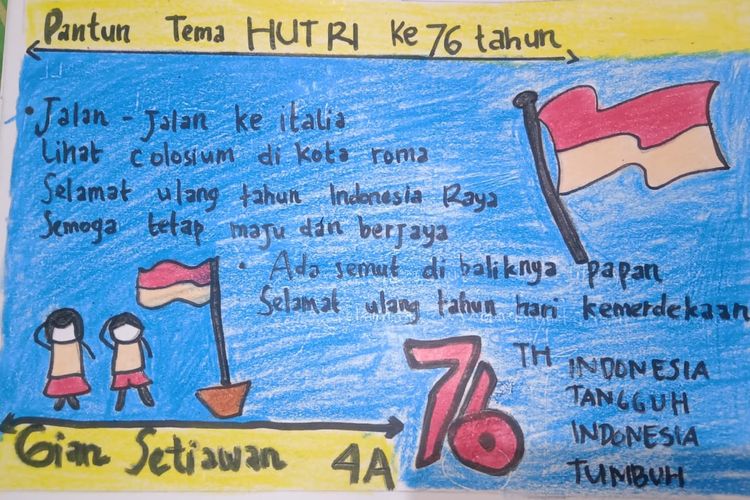 Pantun Tema HUT RI Ke 76 tahun
• Jalan - Jalan ke italia
Lihat colosium di kota roma
Selamat ulang tahun Indonesia Raya
Semoga tetap maju dan berjaya
• Ada semut di baliknya papan
Selamat ulang tahun hari kemerdekaan
76 TH
INDONESIA
TANGGUH
INDONESIA
TUMBUH
Gian Setiawan 4A